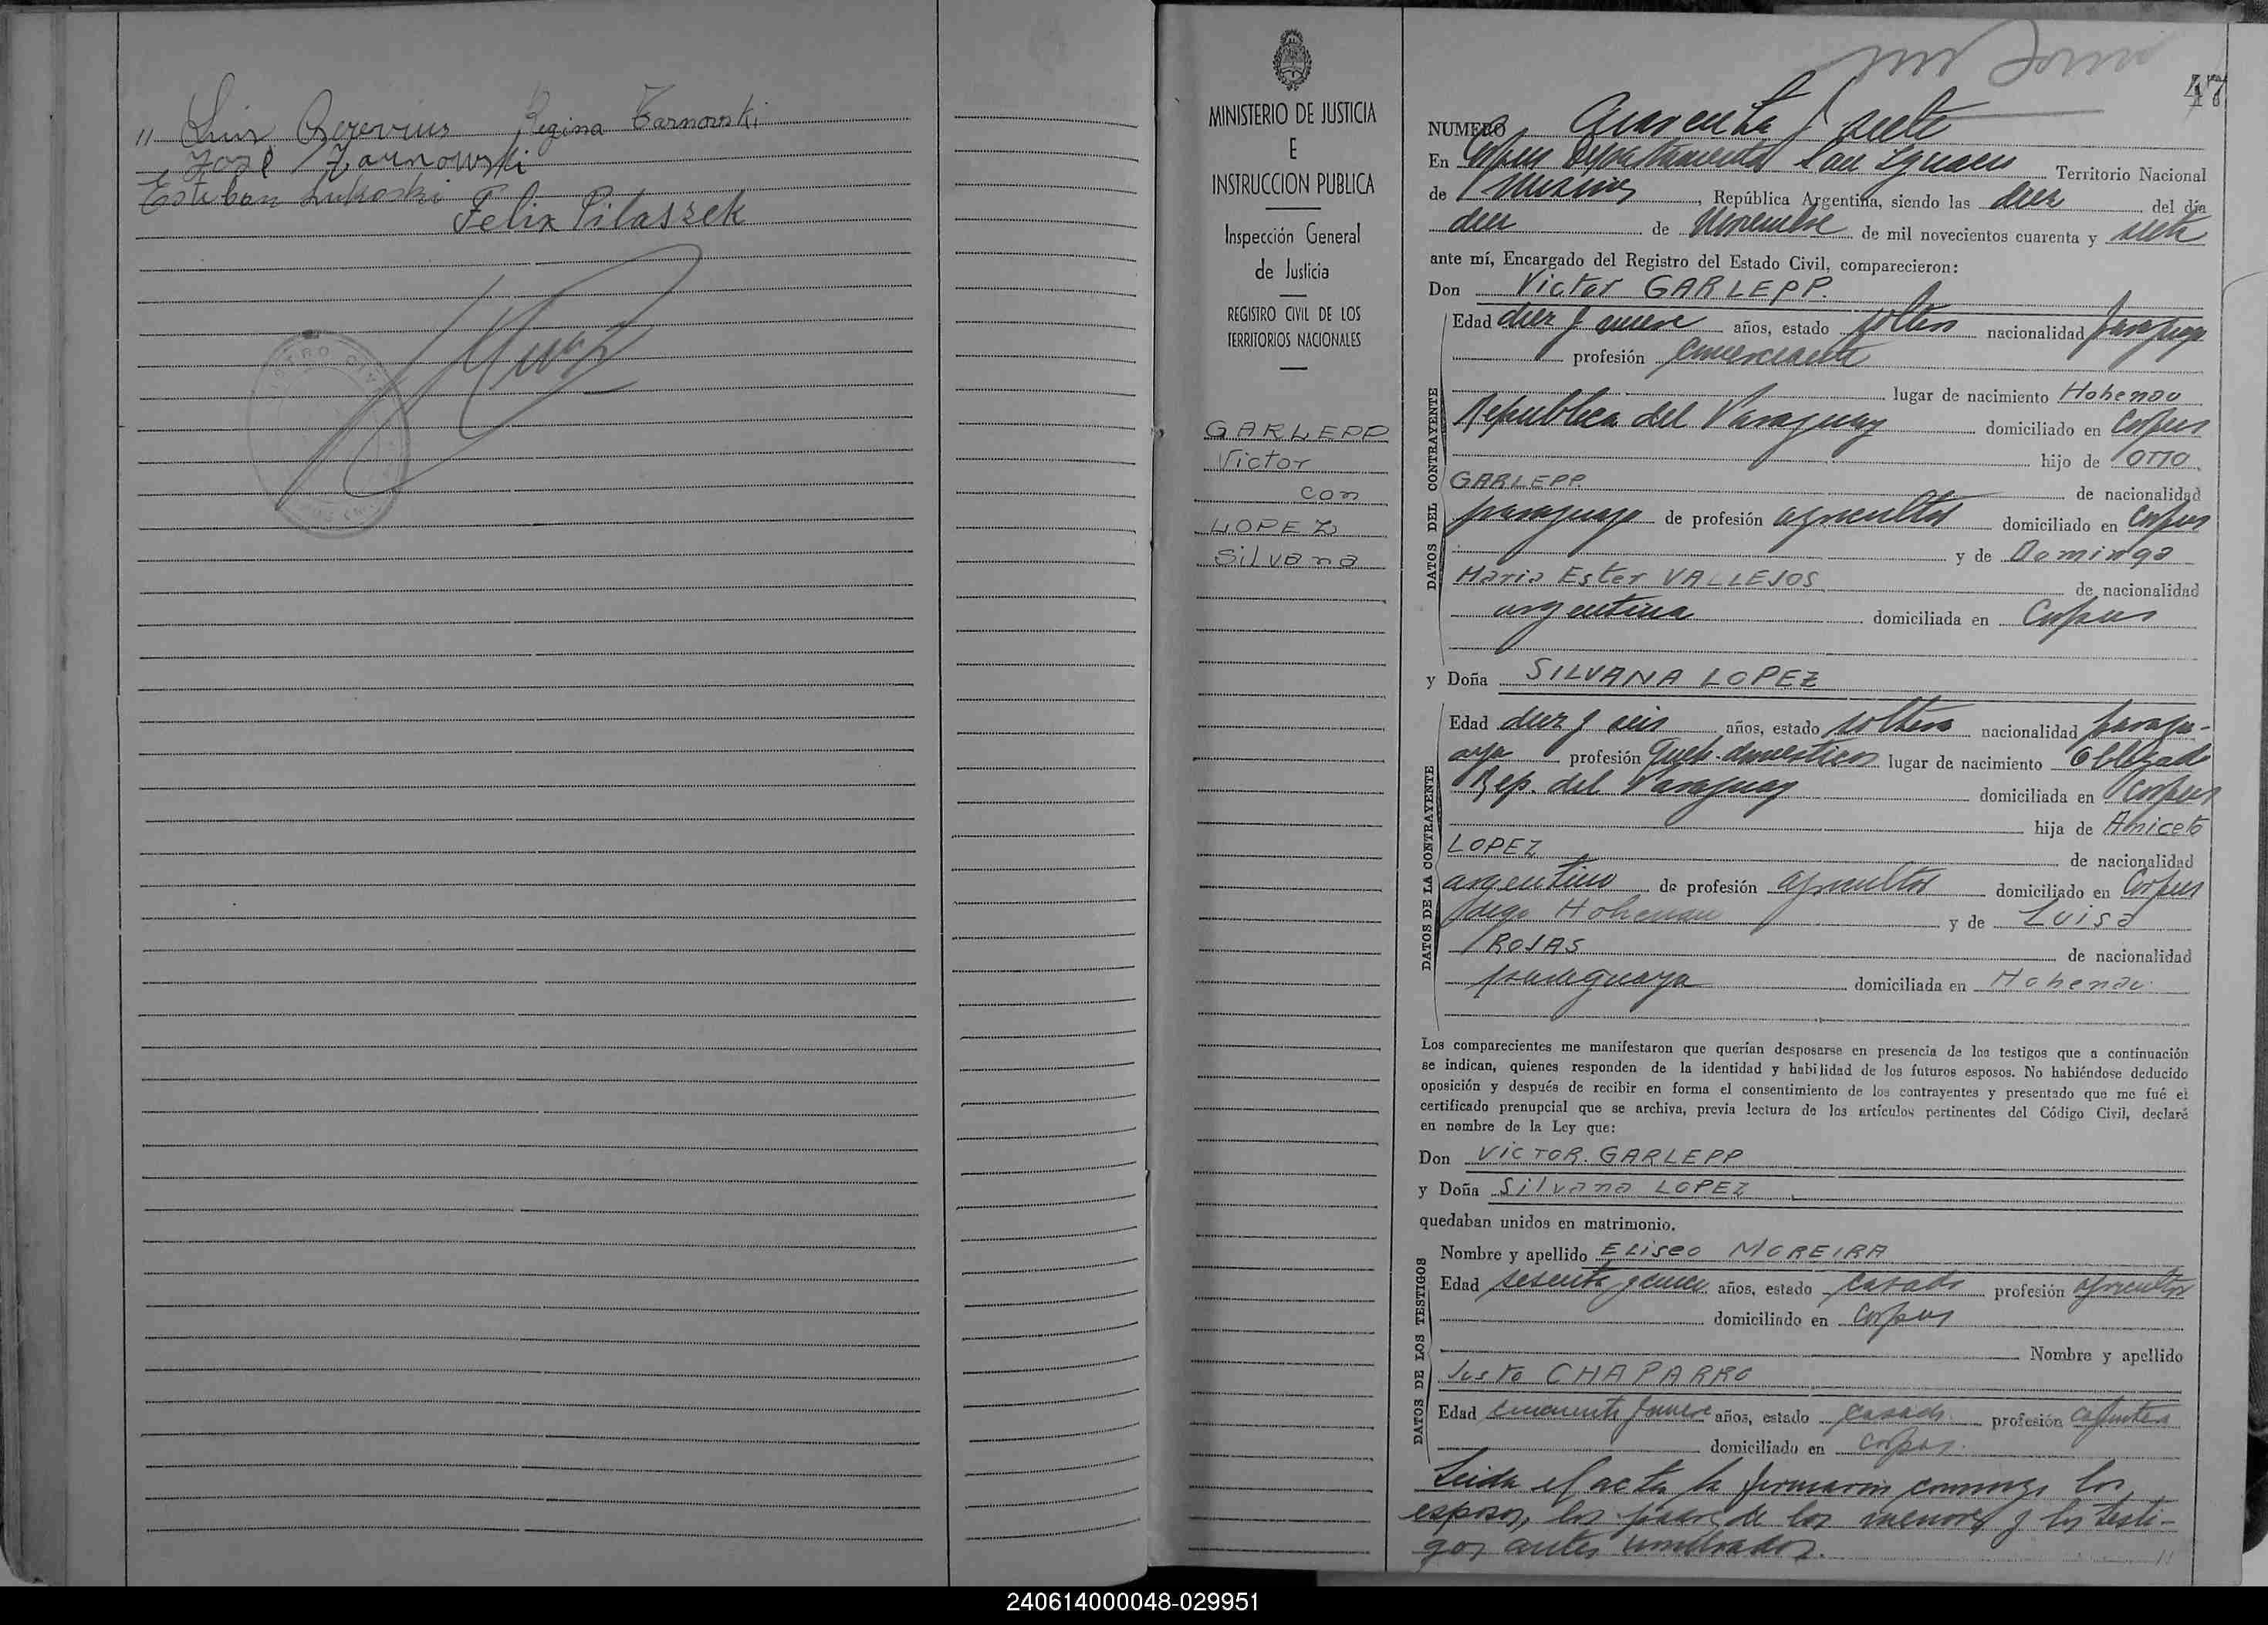 " Luis Regina Tarnowski
José Tarnowski
Esteban Lukoski
Felix Pilaszek
MINISTERIO DE JUSTICIA
E
INSTRUCCION PUBLICA
Inspección General
de Justicia
REGISTRO CIVIL DE LOS
TERRITORIOS NACIONALES
GARLEPP
Victor
con
LOPEZ
Silvana
47
NUMERO Cuarenta y siete
En Corpus Departamento San Ignacio Territorio Nacional
de Misiones, República Argentina, siendo las diez del día
diez de Noviembre de mil novecientos cuarenta y siete
ante mí, Encargado del Registro del Estado Civil, comparecieron:
Don Victor GARLEPP.
DATOS DEL CONTRAYENTE
Edad diez y nueve años, estado soltero nacionalidad paraguayo
profesión comerciante
lugar de nacimiento Hohenau
Republica del Paraguay domiciliado en Corpus
hijo de OTTO
GARLEPP de nacionalidad
paraguayo de profesión agricultor domiciliado en Corpus
y de Dominga
Maria Ester VALLEJOS de nacionalidad
argentina domiciliada en Corpus
y Doña SILVANA LOPEZ
DATOS DE LA CONTRAYENTE
Edad diez y seis años, estado soltera nacionalidad paragu-
aya profesión Queh. domesticos lugar de nacimiento Obligado
Rep. del Paraguay domiciliada en Corpus
hija de Aniceto
LOPEZ de nacionalidad
argentino de profesión agricultor domiciliado en Corpus
digo Hohenau y de Luisa
ROJAS de nacionalidad
paraguaya domiciliada en Hohenau
Los comparecientes me manifestaron que querían desposarse en presencia de los testigos que a continuación
se indican, quienes responden de la identidad y habilidad de los futuros esposos. No habiéndose deducido
oposición y después de recibir en forma el consentimiento de los contrayentes y presentado que me fué el
certificado prenupcial que se archiva, previa lectura de los artículos pertinentes del Código Civil, declaré
en nombre de la Ley que:
Don VICTOR. GARLEPP
y Doña Silvana LOPEZ
quedaban unidos en matrimonio.
DATOS DE LOS TESTIGOS
Nombre y apellido Eliseo MOREIRA
Edad sesenta y años, estado casado profesión agricultor
domiciliado en Corpus
Nombre y apellido
Justo CHAPARRO
Edad cincuenta y nueve años, estado casado profesión carpintero
domiciliado en Corpus.
Leida el acta la firmaron conmigo los
esposos, los padres de los menores y los testi-
gos antes nombrados. "
240614000048-029951